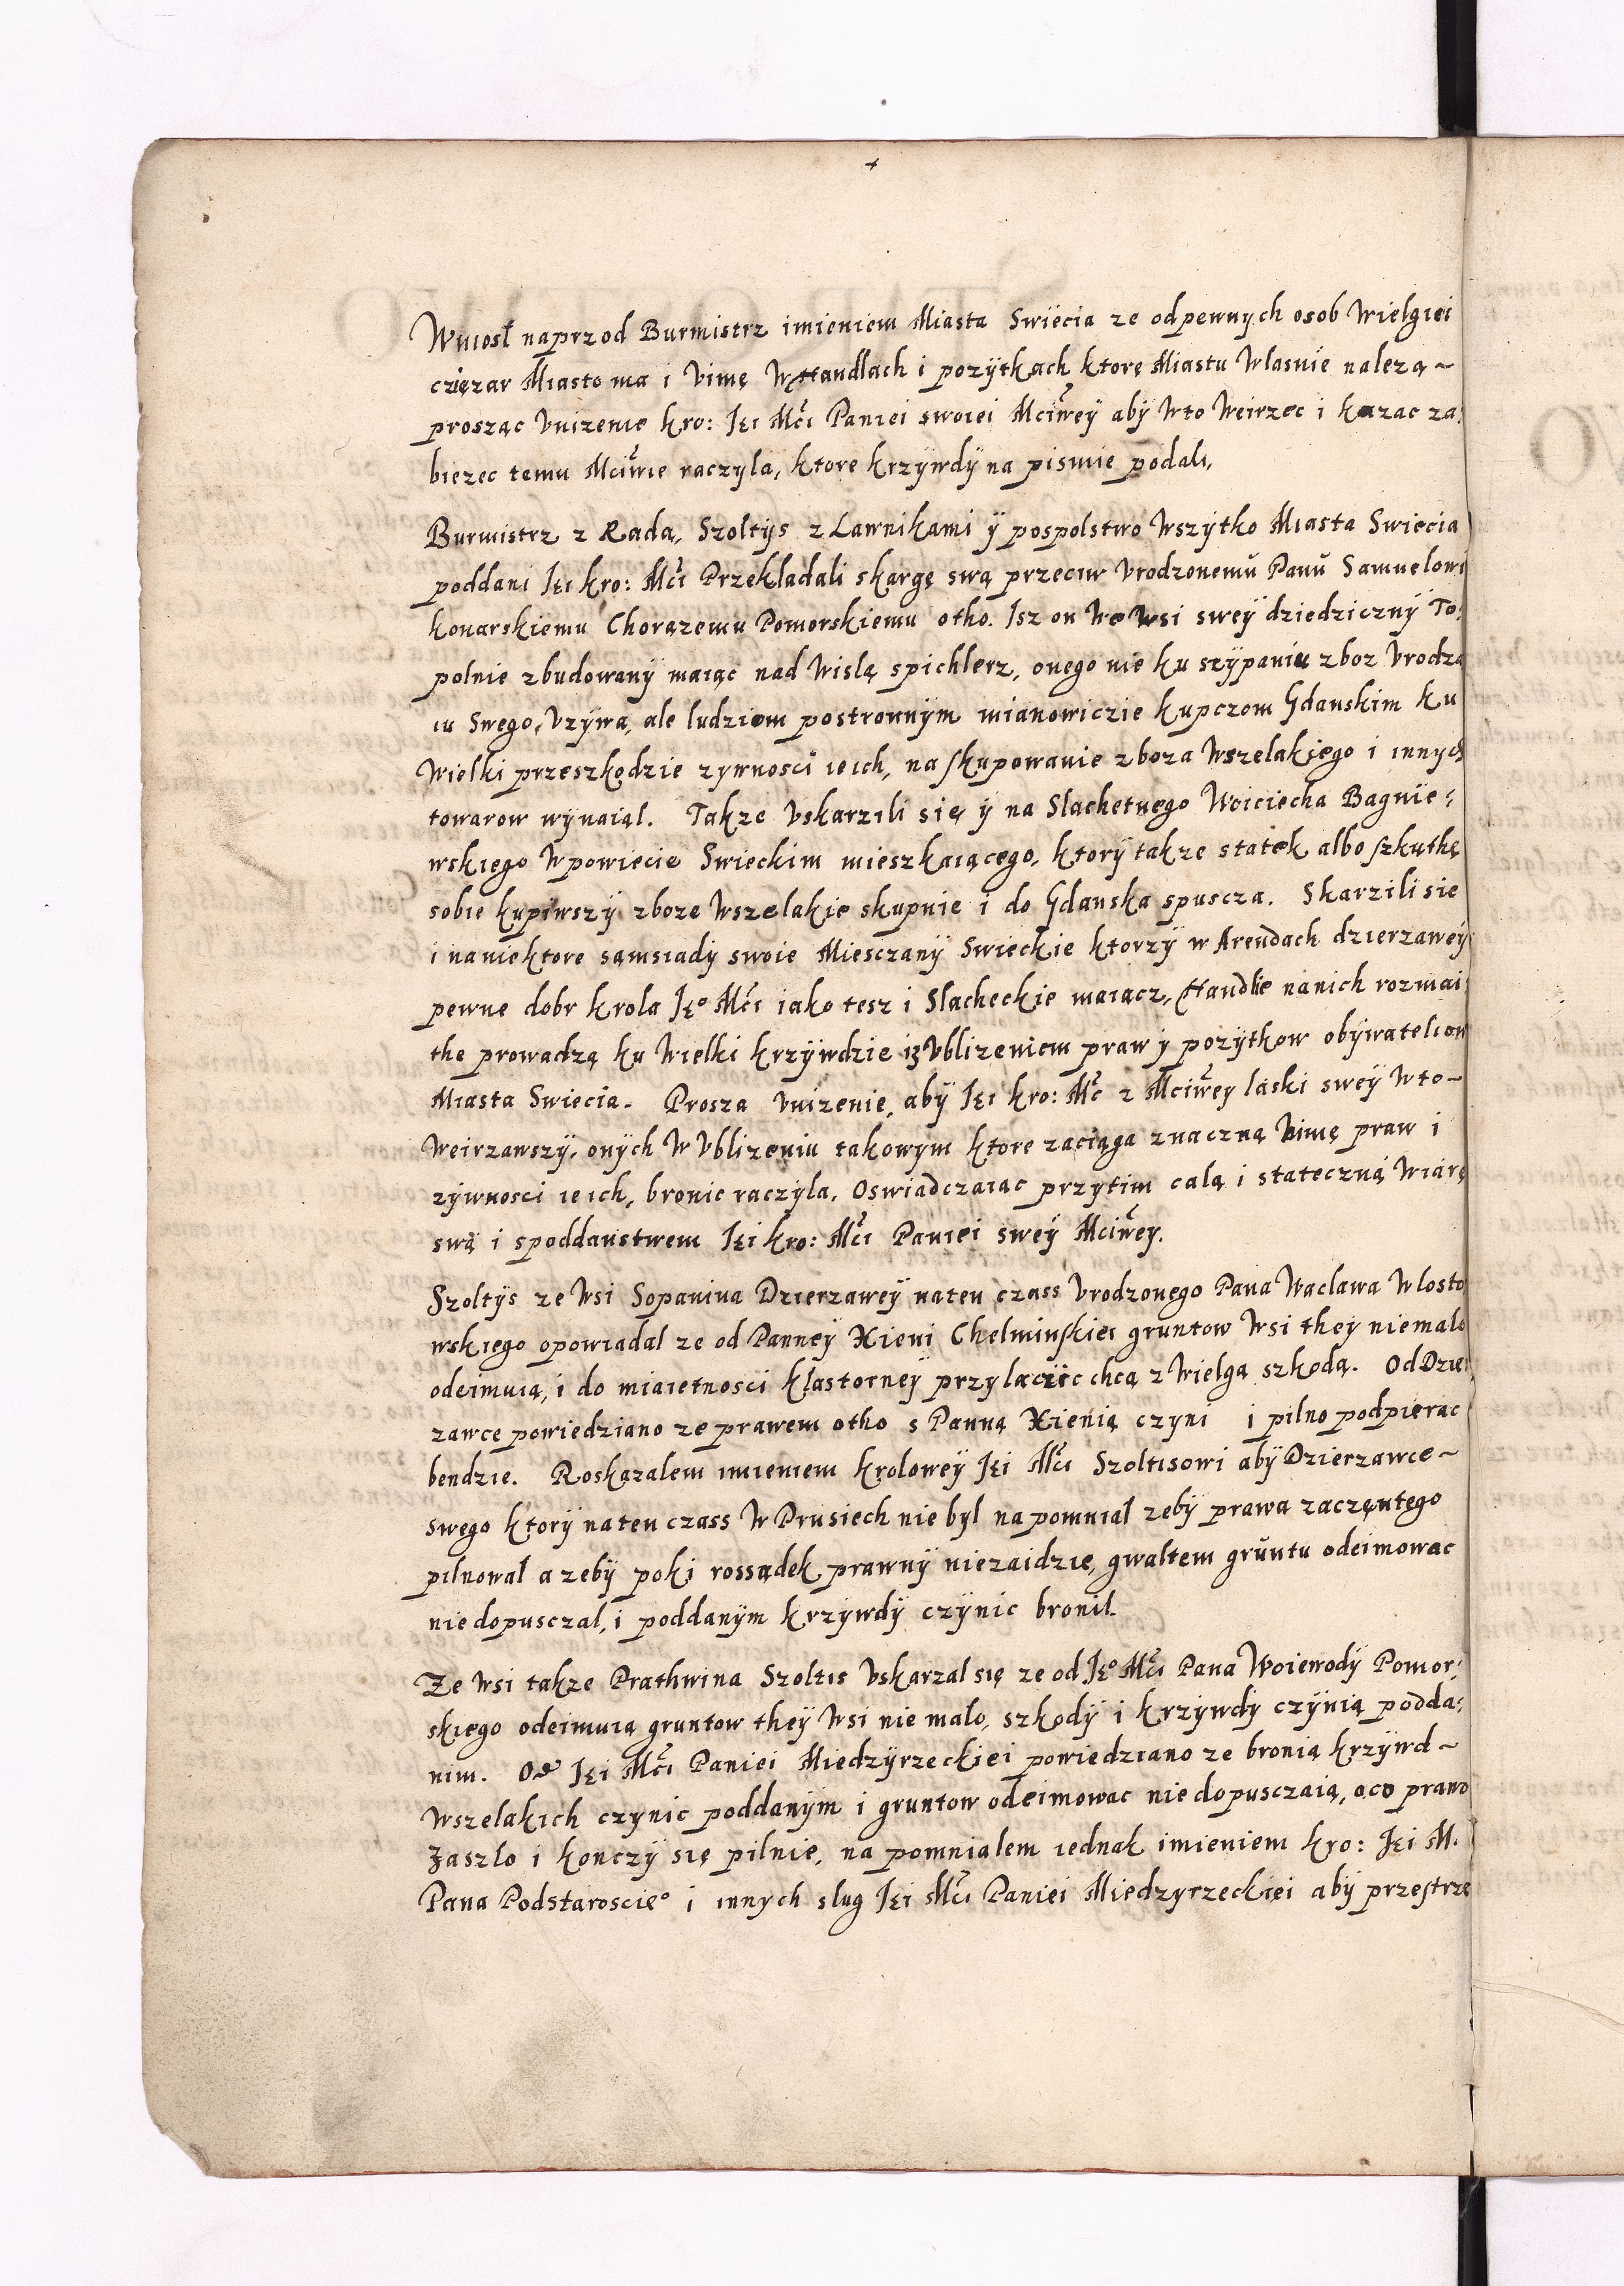 Wniosł naprzod Burmistrz imieniem Miasta Swiecia ze od pewnych osob Wielgiei
czięzar Miasto ma i Uimę W Handlach i pozÿtkach ktorę Miastu Wlasnie nalezą ~
prosząc Unizenie kro: Jęi Mći Paniei swoiei Mciwey abÿ W to Weirzec i kazac za:
biezec temu Mciwie raczyla, ktore krzÿwdÿ na pismie podali,
Burmistrz z Radą, Szoltÿs z Lawnikami ÿ pospolstwo Wszÿtko Miasta Swiecia
poddani Jęi kro: Mći Przekladali skargę swą przeciw Urodzonemu Panu Samuelowi
konarskiemu Chorązemu Pomorskiemu otho. Isz on We Wsi sweÿ dziedzicznÿ To:
polnie zbudowanÿ maiąc nad Wislą spichlerz, onego nie ku szÿpaniu zboz Urodza
iu Swego, Uzÿwa, ale ludziom postronnÿm mianowiczie kupczom Gdanskim ku
Wielki przeszkodzie zywnosci ieich, na skupowanie zboza Wszelakiego i innych
towarow wÿnaiąl. Takze Uskarzili się ÿ na Slachetnego Woiciecha Bagnie:
wskiego W powiecie Swieckim mieszkaiącego, ktorÿ takze statek albo szkuthę
sobie kupiwszÿ zboze Wszelakie skupuie i do Gdanska spuscza. Skarzili sie
i na niektore sąmsiady swoie Miesczanÿ Swieckie ktorzÿ w Arendach dzierzaweÿ
pewne dobr krola Jęº Mći iako tesz i Slacheckie maiącz, Handlie na nich rozmai:
the prowadzą ku Wielki krzÿwdzie iz Ublizeniem praw ÿ pozÿtkow obÿwateliow
Miasta Swiecia. Prosza Unizenie, abÿ Jęi kro: Mć z Mciwey laski sweÿ W to ~
Weirzawszÿ, onÿch W Ublizeniu takowÿm ktore zaciąga znaczną Uimę praw i
zÿwnosci ieich, bronic raczÿla, Oswiadczaiąc przytim calą i stateczną Wiarę
swą i spoddanstwem Jęi kro: Mći Paniei sweÿ Mciwey.
Szoltÿs ze Wsi Sopanina Dzierzaweÿ na ten czass Urodzonego Pana Waclawa Wlosto
wskiego opowiadal ze od Panneÿ Xieni Chelminskiei gruntow Wsi theÿ niemalo
odeimuią, i do maietnosci klastorneÿ przylaczic chcą z Wielgą szkodą. Od Dzie
zawce powiedziano ze prawem otho s Panną Xienią czyni i pilno podpierac
bendzie. Roskazalem imieniem krolowey Jęi Mći Szoltisowi abÿ Dzierzawce ~
swego ktorÿ na ten czass W Prusiech nie byl napomnial zebÿ prawa zaczęntego
pilnowal a zebÿ poki rossądek prawnÿ niezaidzie, gwaltem gruntu odeimowac
nie dopusczal, i poddanÿm krzÿwdÿ czÿnic bronil.
Ze Wsi takze Prathwina Szoltis Uskarzal się ze od Jęº Mći Pana Woiewodÿ Pomor:
skiego odeimuią gruntow theÿ Wsi nie malo, szkodÿ i krzÿwdy czÿnią podda:
nim. Od Jęi Mći Paniei Miedzÿrzeckiei powiedziano ze bronią krzÿwd ~
Wszelakich czynic poddanÿm i gruntow odeimowac nie dopusczaią, o co prawo
Zaszlo i konczÿ się pilnie, napomnialem iednak imieniem kro: Jęi M.
Pana Podstaroscięº i innych slug Jęi Mći Paniei Miedzyrzeckiei abÿ przestrze